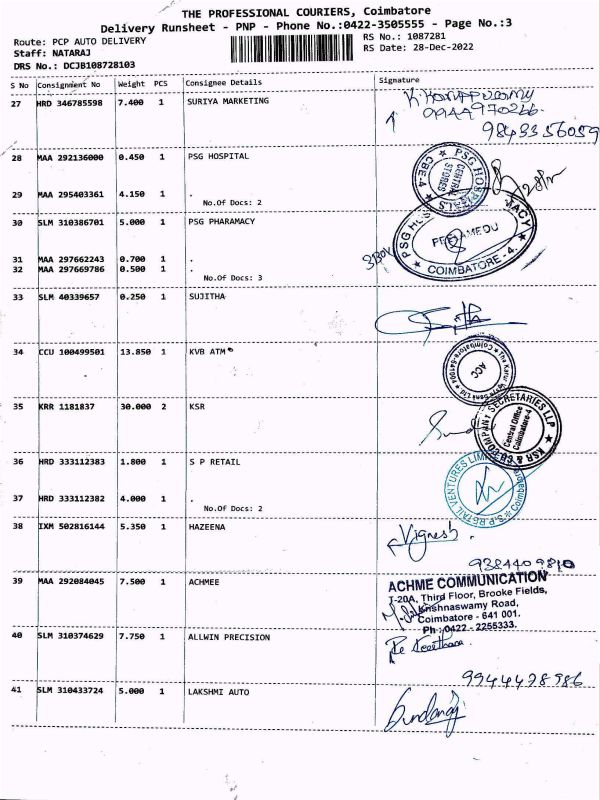 THE PROFESSIONAL COURIERS, Coimbatore
Delivery Runsheet - PNP - Phone No.:0422-3505555 - Page No.:3
Route: PCP AUTO DELIVERY
RS No.: 1087281
Staff: NATARAJ
RS Date: 28-Dec-2022
DRS No.: DCJB108728103
S No Consignment No Weight PCS Consignee Details Signature
27 HRD 346785598 7.400 1 SURIYA MARKETING
9843356059
28 MAA 292136000 0.450 1 PSG HOSPITAL
PSG HOSPITALS
CENTRAL STORES
CBE-4
29 MAA 295403361 4.150 1 .
No.Of Docs: 2
30 SLM 310386701 5.000 1 PSG PHARAMACY
PEELAMEDU
COIMBATORE - 4.
3 Box
31 MAA 297662243 0.700 1 .
32 MAA 297669786 0.500 1 .
No.Of Docs: 3
33 SLM 40339657 0.250 1 SUJITHA
34 CCU 100499501 13.850 1 KVB ATM
ACC
35 KRR 1181837 30.000 2 KSR
KSR & CO COMPANY SECRETARIES LLP
Central Office
Coimbatore-4
36 HRD 333112383 1.800 1 S P RETAIL
S.P.RETAIL VENTURES LIMITED
37 HRD 333112382 4.000 1 .
No.Of Docs: 2
38 IXM 502816144 5.350 1 HAZEENA
Vignesh.
9384409810
39 MAA 292084045 7.500 1 ACHMEE
ACHME COMMUNICATION
T-20A, Third Floor, Brooke Fields,
Krishnaswamy Road,
Coimbatore - 641 001.
Ph : 0422 - 2255333.
40 SLM 310374629 7.750 1 ALLWIN PRECISION
9944498986
41 SLM 310433724 5.000 1 LAKSHMI AUTO